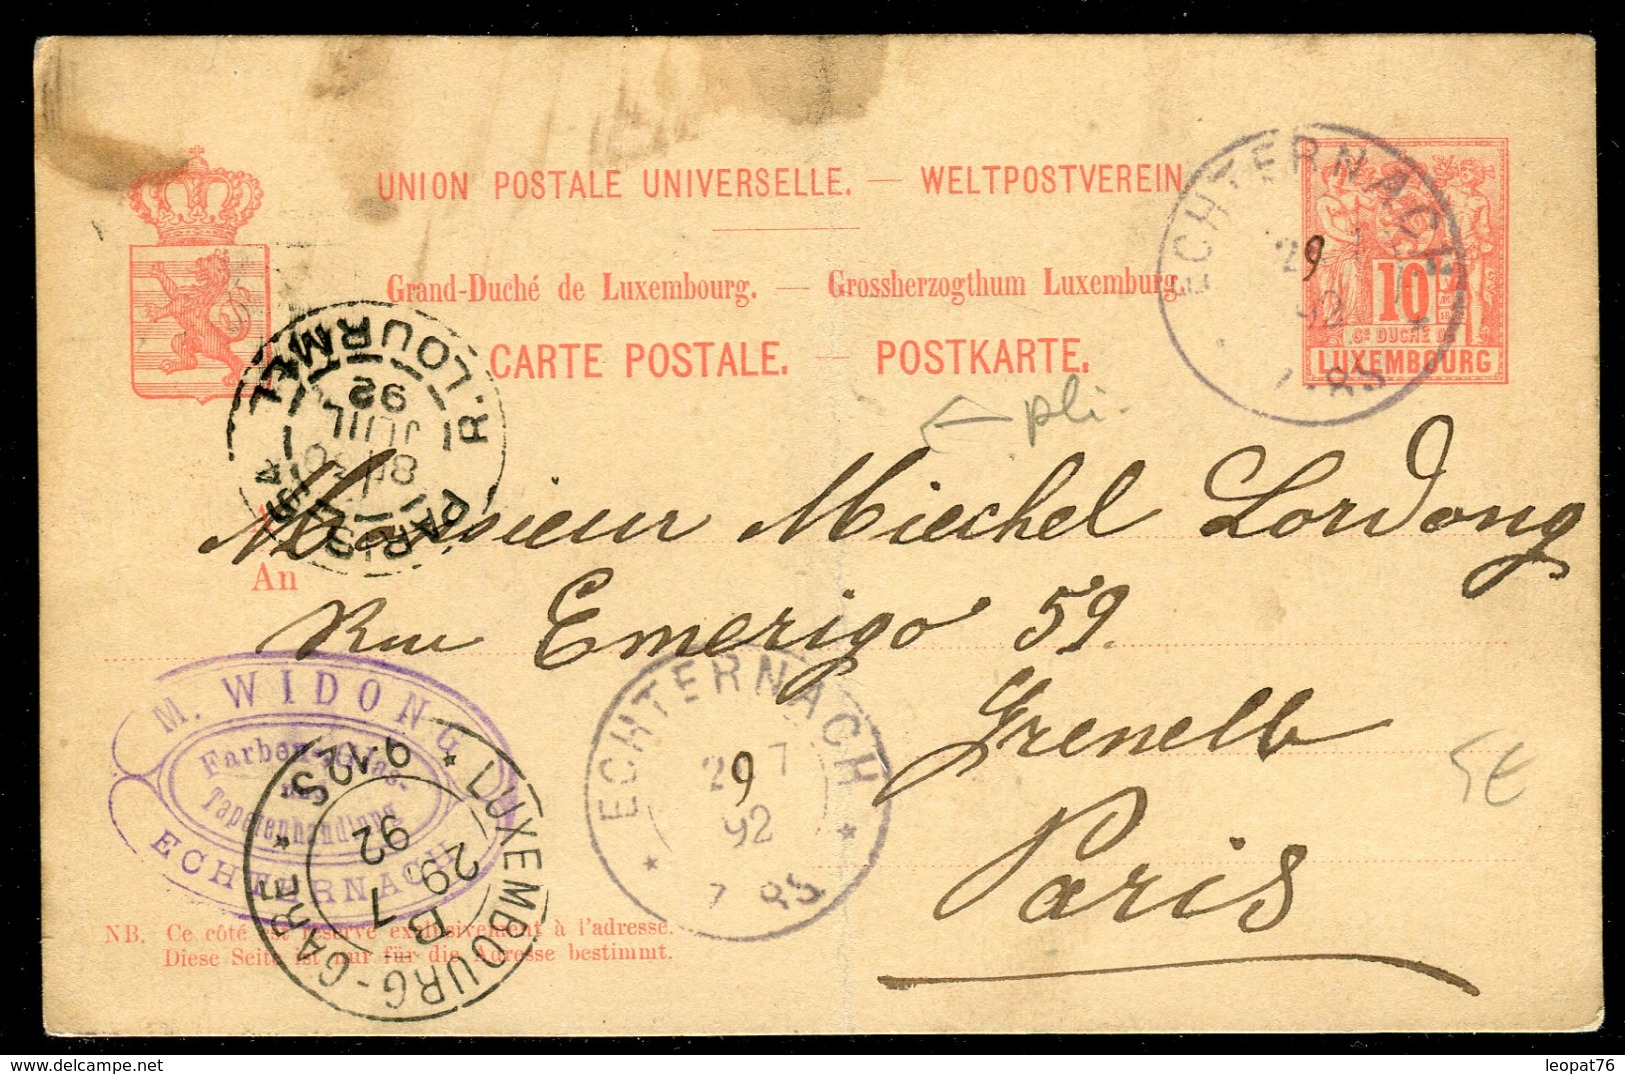 UNION POSTALE UNIVERSELLE. — WELTPOSTVEREIN
Grand-Duché de Luxembourg. — Grossherzogthum Luxemburg.
CARTE POSTALE. — POSTKARTE.
10
Gd DUCHÉ DE
LUXEMBOURG
ECHTERNACH
29
92
7-8S
R. LOURMEL
92
JUIL
30
PARIS
pli.
Monsieur Miechel Lordong
An
Rue Emerigo 59.
Grenelle
Paris
5€
M. WIDONG
Farben-, Glas-
und
Tapetenhandlung
ECHTERNACH
LUXEMBOURG-GARE
9-10S
92
29. 7
B
ECHTERNACH
29 7
92
7-8S
NB. Ce côté est réservé exclusivement à l'adresse.
Diese Seite ist nur für die Adresse bestimmt.
leopat76